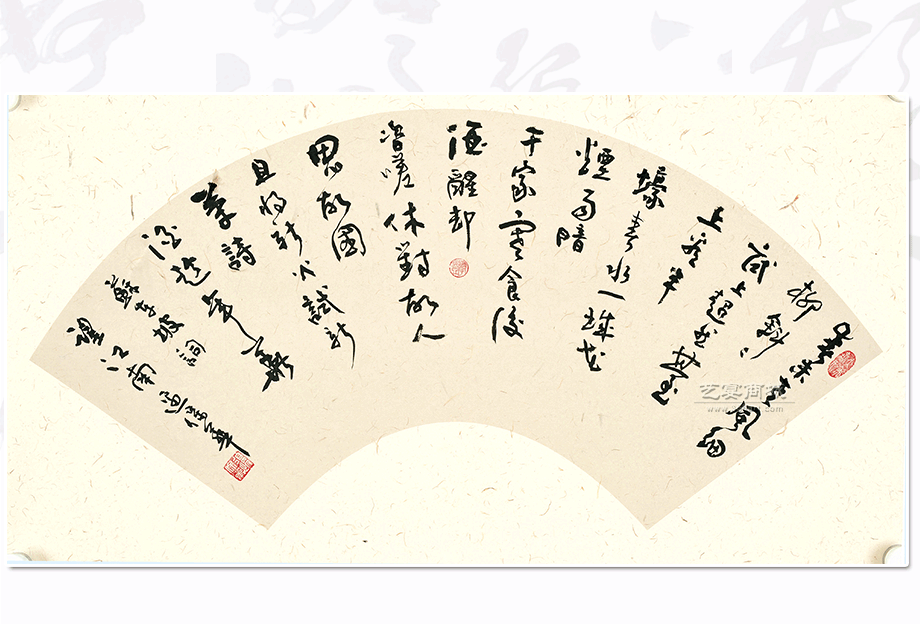 春未老風細
柳斜々
試上超然臺
上看半
壕春水一城花
煙雨暗
千家寒食後
酒醒却
咨嗟休對故人
思故國
且將新火試新
茶詩
酒趁年華
蘇東坡詞
望江南
艺宴商城